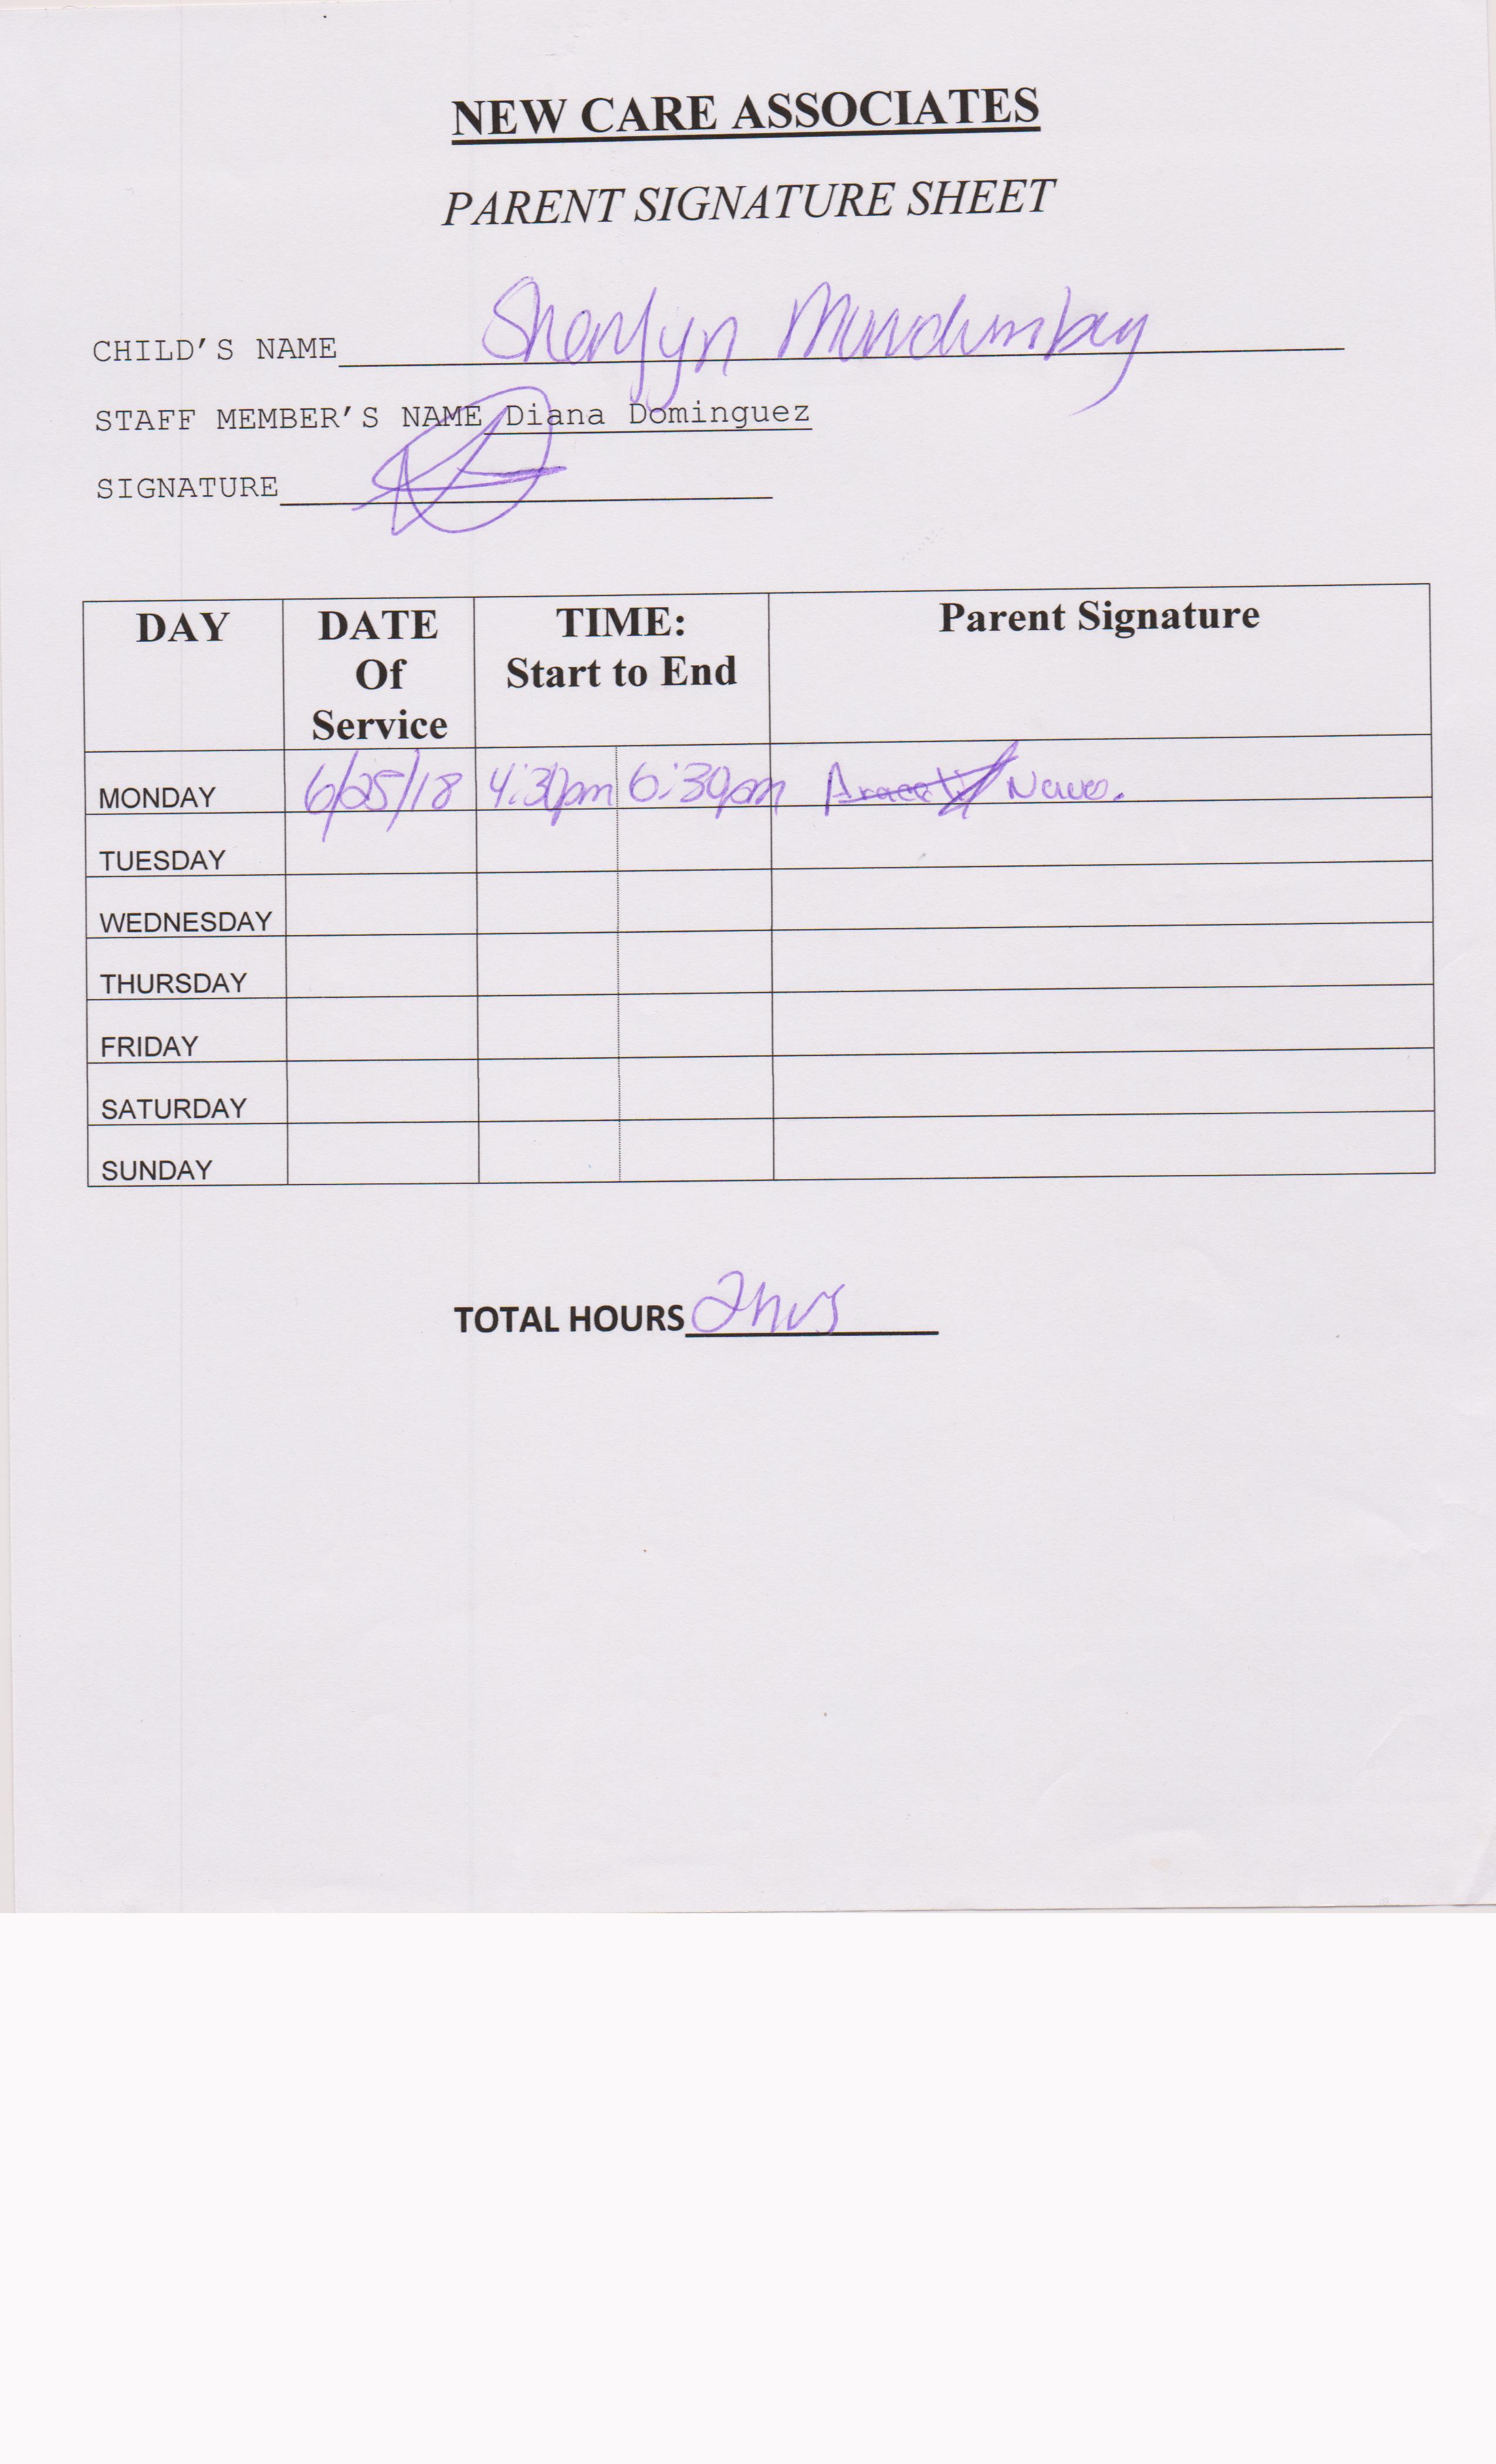 NEW CARE ASSOCIATES
PARENT SIGNATURE SHEET
CHILD'S NAME Sherlyn
STAFF MEMBER'S NAME Diana Dominguez
SIGNATURE
DAY DATE Of Service TIME: Start to End Parent Signature
MONDAY 6/25/18 4:30pm 6:30pm Araceli
TUESDAY
WEDNESDAY
THURSDAY
FRIDAY
SATURDAY
SUNDAY
TOTAL HOURS 2hrs